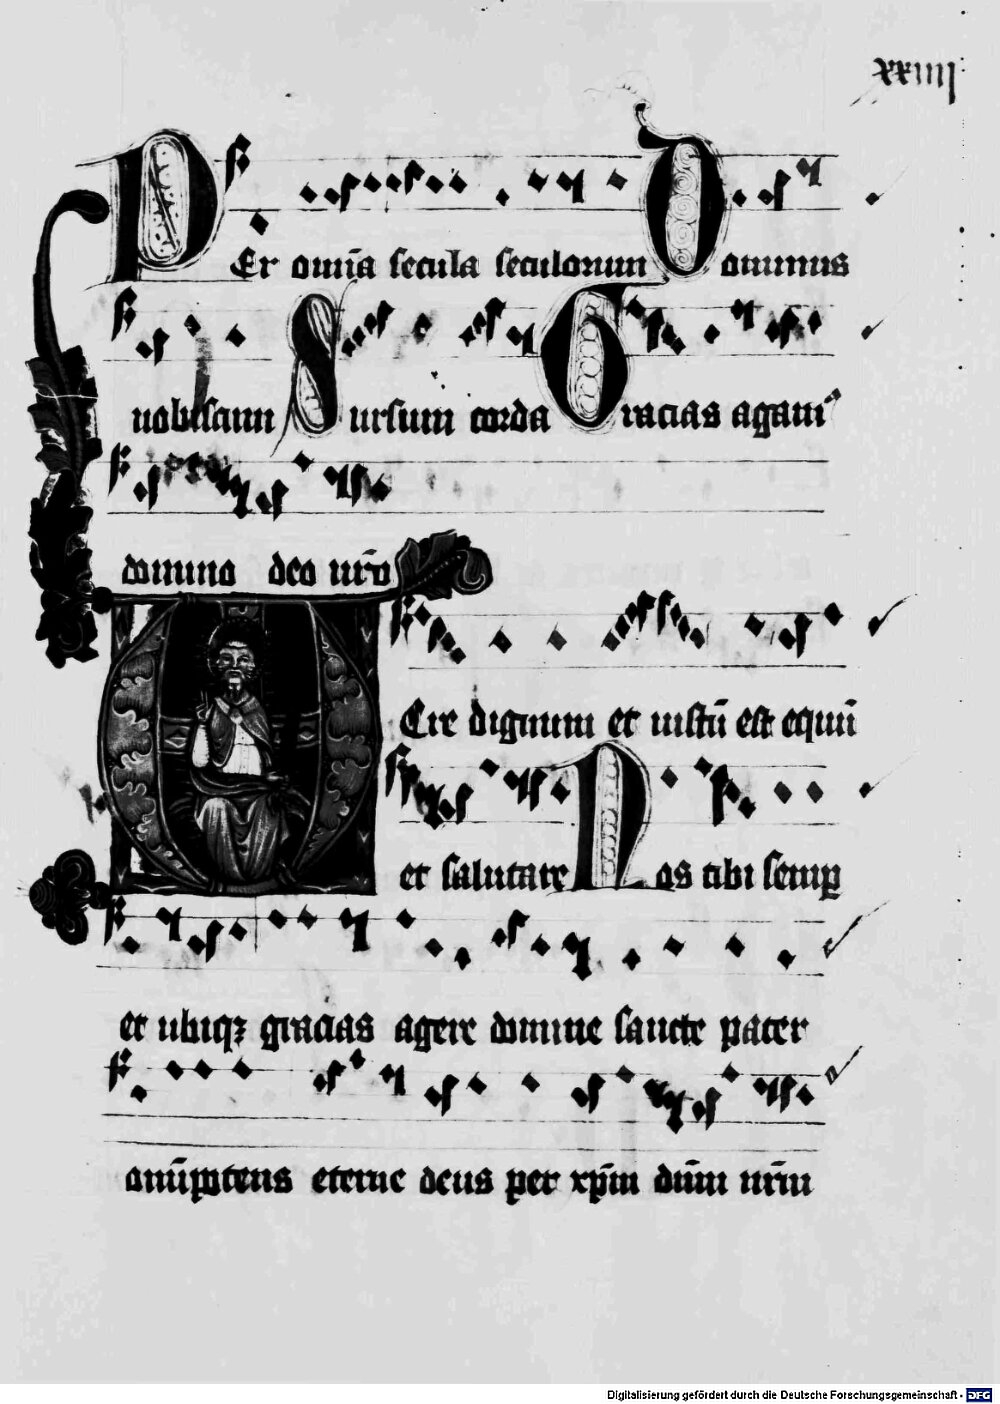 xxiiij
PEr omīa secula seculorum Dominus
uobiscum Sursum corda Gracias agam᷒
domino deo nr̄o
VEre dignum et iustū est equū
et salutare Nos tibi semꝑ
et ubiqꝫ gracias agere domine sancte pater
omīp̄otens eterne deus per xp̄m dn̄m nr̄m
Digitalisierung gefördert durch die Deutsche Forschungsgemeinschaft - DFG